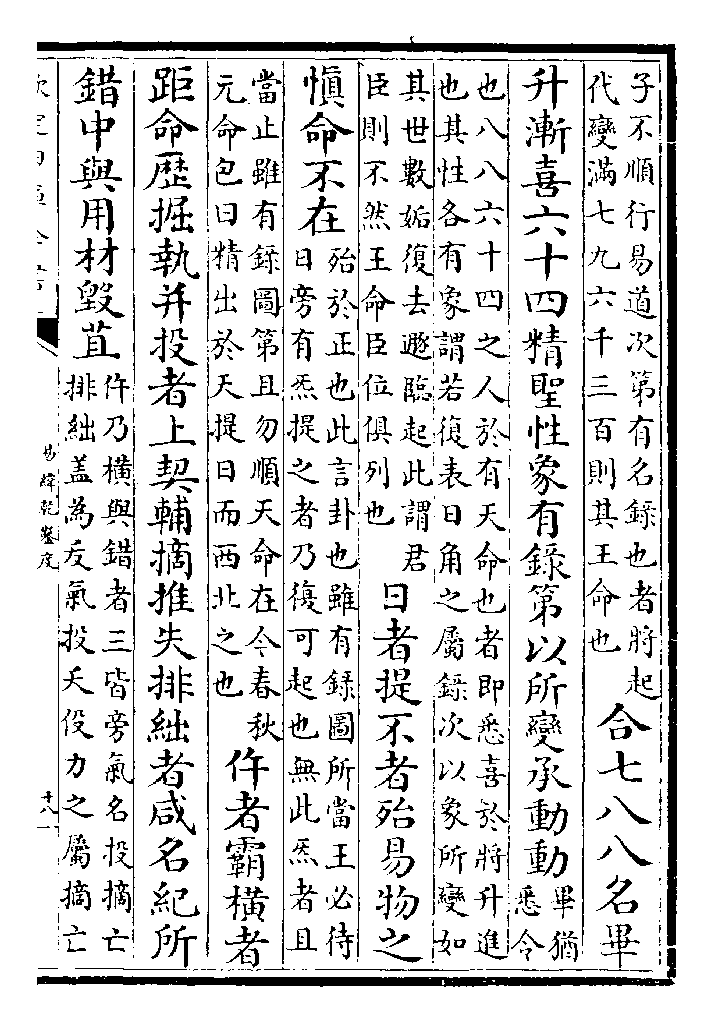 子不順行易道次第有名錄也者將起
代變滿七九六千三百則其王命也
合七八八名畢
升漸喜六十四精聖性象有錄第以所變承動動
畢猶
悉令
也八八六十四之人於有天命也者即悉喜於將升進
也其性各有象謂若復表日角之屬錄次以象所變如
其世數姤復去遯臨起此謂君
臣則不然王命臣位俱列也
日者提不者殆易物之
慎命不在
殆於正也此言卦也雖有錄圖所當王必待
日旁有炁提之者乃復可起也無此炁者且
當止雖有錄圖第且勿順天命在今春秋
元命包曰精出於天提日而西北之也
仵者霸橫者
距命歷掘執并投者上契輔摘推失排絀者咸名紀所
錯中與用材毀苴
仵乃橫與錯者三皆旁氣名投摘亡
排絀盖為友氣投夭伇力之屬摘亡
易緯乾鑿度
十八